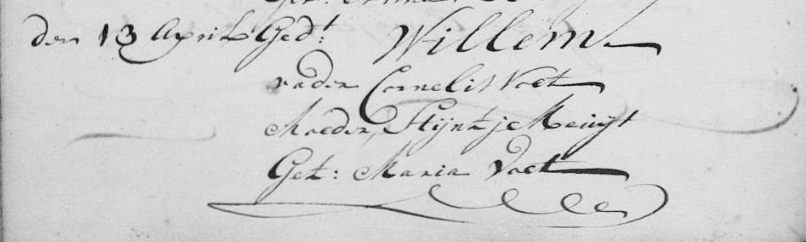 den 13 April Ged.t Willem
vader Cornelis Voet
Moeder, Stijntje
Get: Maria Voet